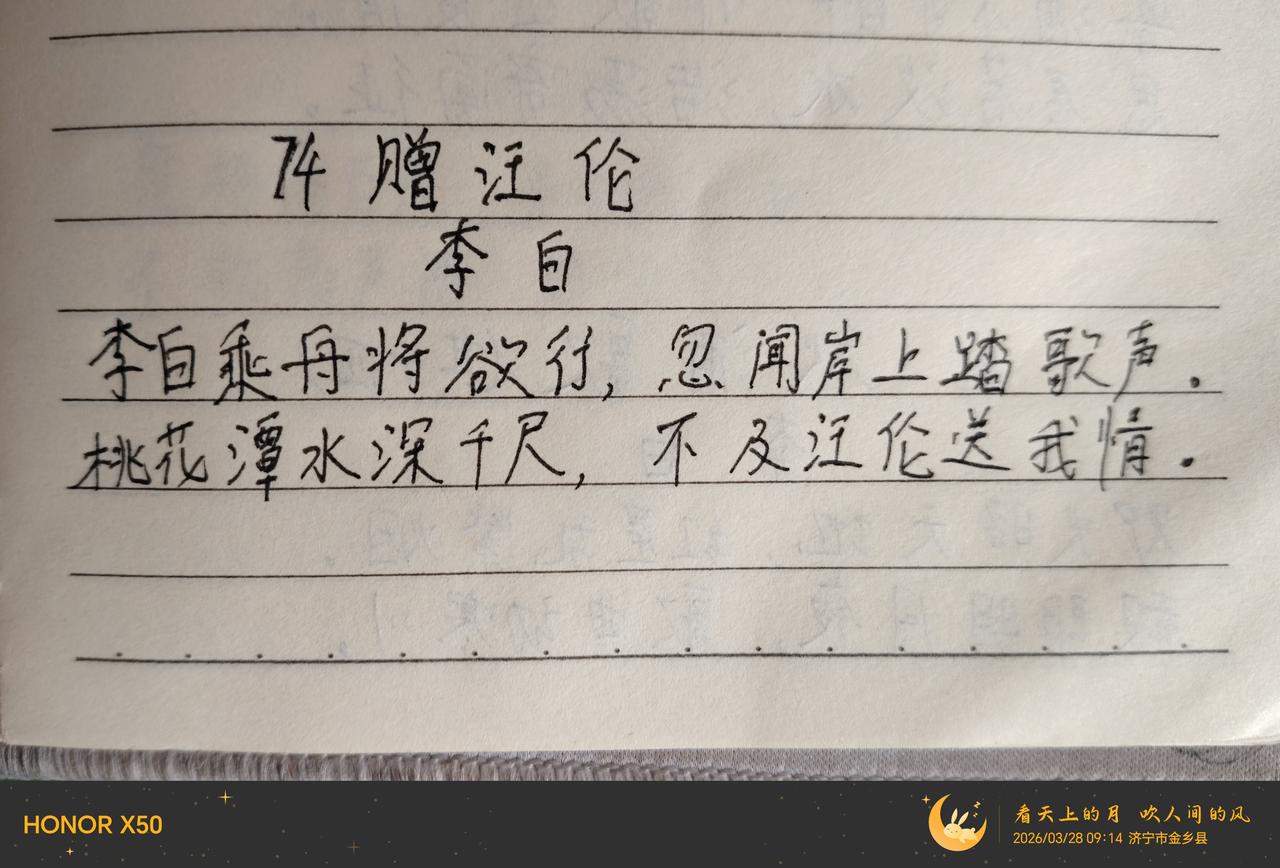 74 赠汪伦
李白
李白乘舟将欲行，忽闻岸上踏歌声．
桃花潭水深千尺，不及汪伦送我情．
HONOR X50
看天上的月 吹人间的风
2026/03/28 09:14 济宁市金乡县